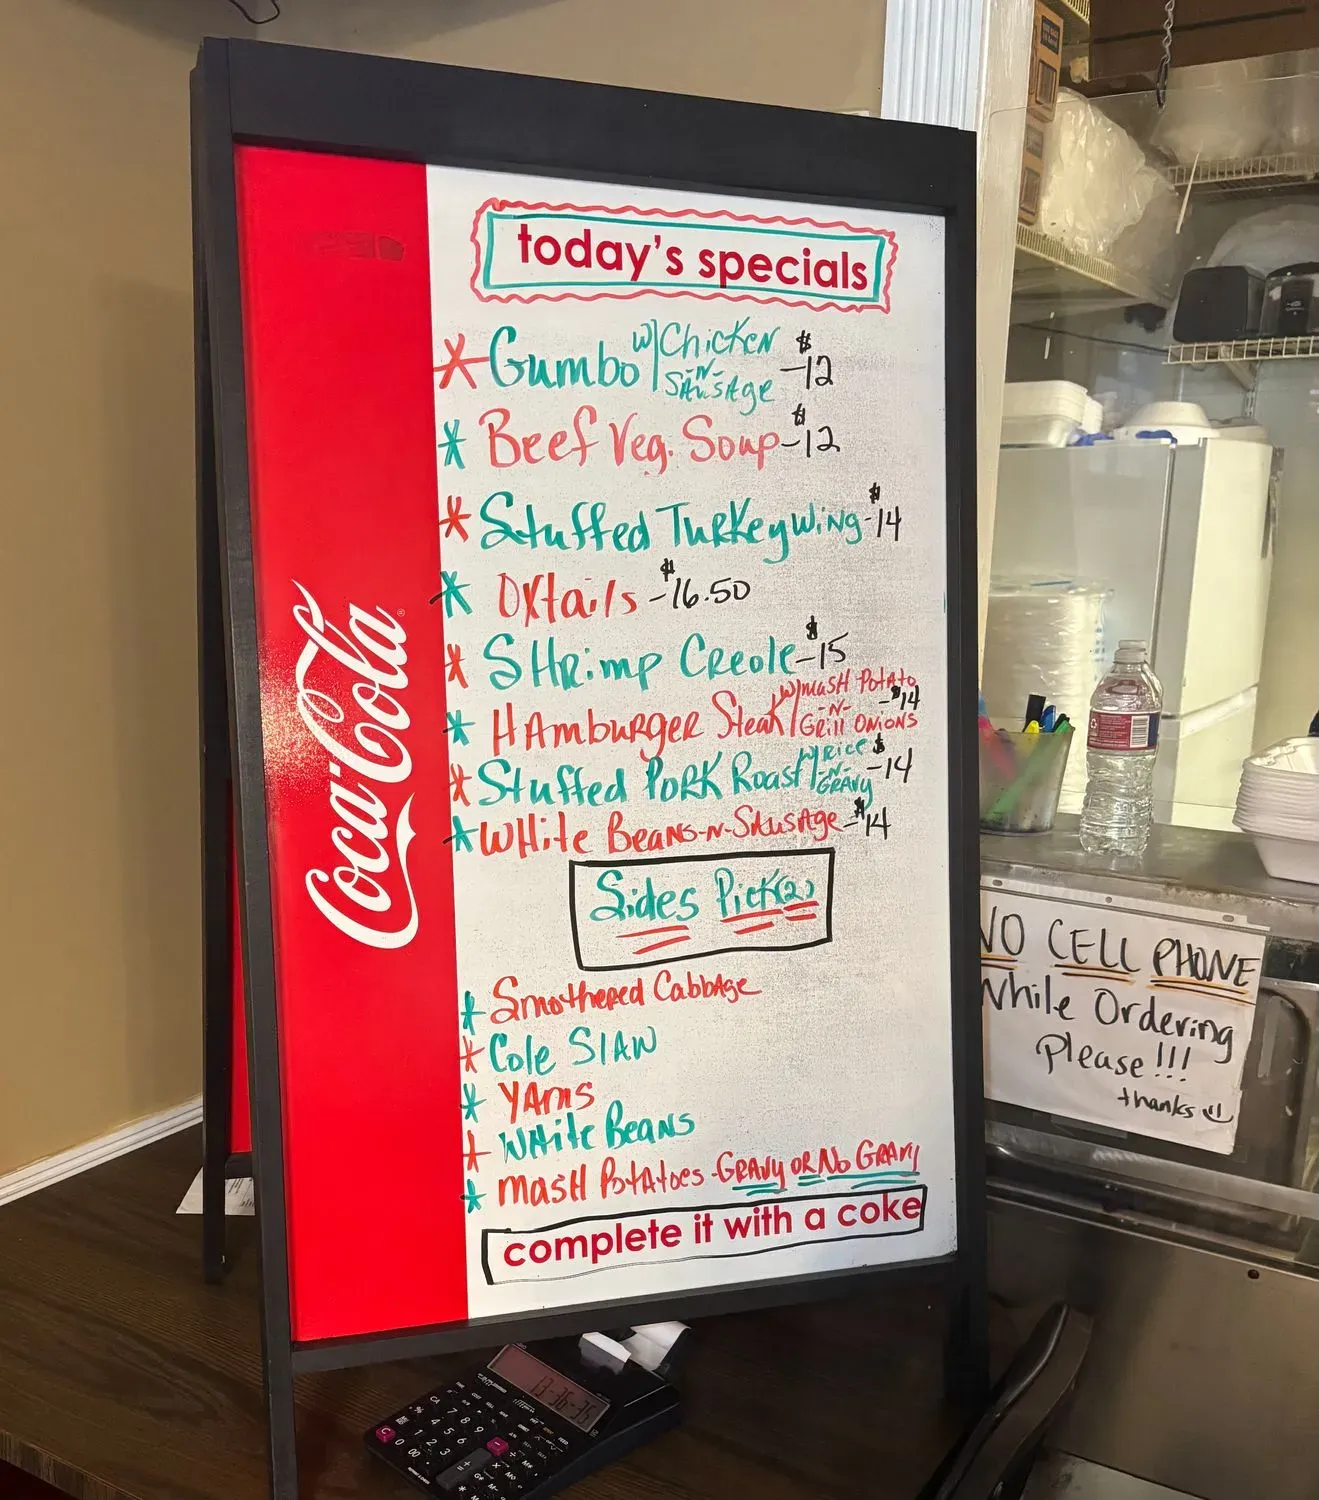 today's specials
* Gumbo w/ Chicken -N- Sausage - $12
* Beef Veg. Soup - $12
* Stuffed Turkey Wing - $14
* Oxtails - $16.50
* Shrimp Creole - $15
* Hamburger Steak w/ Mash Potato -N- Grill Onions - $14
* Stuffed Pork Roast w/ Rice -N- Gravy - $14
* White Beans -N- Sausage - $14
Sides Pick (2)
* Smothered Cabbage
* Cole Slaw
* Yams
* White Beans
* Mash Potatoes - Gravy or No Gravy
complete it with a coke
Coca-Cola
NO CELL PHONE
While Ordering
Please!!!
thanks
13-36-35